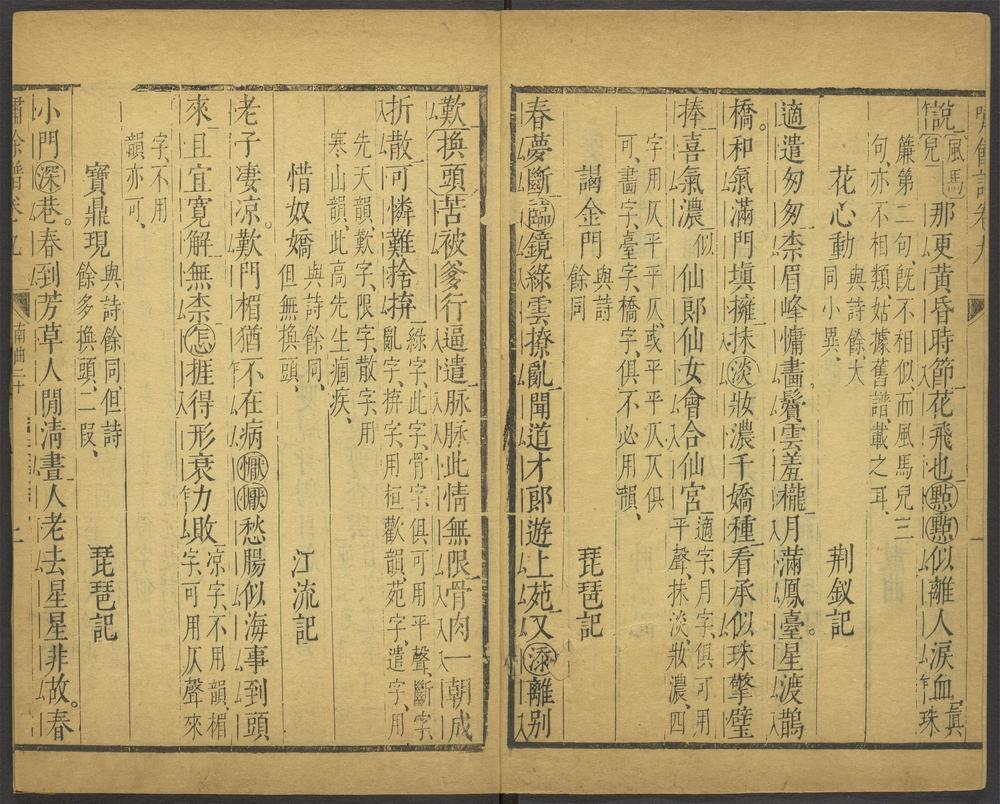 嘯餘譜卷九
說風馬兒那更黃昏時節花飛也點點似離人淚血眞珠
簾第二句旣不相似而風馬兒三
句、亦不相類姑據舊譜載之耳、
花心動 與詩餘大同小異、 荆釵記
適遣匆匆柰眉峰慵畵鬢雲羞櫳月滿鳳臺星渡鵲
橋。和氣滿門塡擁抹淡妝濃千嬌種看承似珠擎璧
捧喜氣濃似仙郎仙女會合仙宮適字、月字、俱可用平聲、抹淡妝濃、四
字用仄平平仄、或平平仄仄俱
可、畵字、臺字、橋字、俱不必用韻、
謁金門 與詩餘同 琵琶記
春夢斷臨鏡綠雲撩亂聞道才郎遊上苑又添離别
歎換頭苦被爹行逼遣脉脉此情無限骨肉一朝成
折散可憐難捨拚綠字、此字、骨字、俱可用平聲、斷字、亂字、拚字、用桓歡韻、苑字、遣字、用
先天韻、歎字、限字、散字、用
寒山韻、此高先生痼疾、
惜奴嬌 與詩餘同、但無換頭、 江流記
老子凄涼。歎門楣猶不在病懨懨愁腸似海事到頭
來且宜寬解無柰怎捱得形衰力敗涼字、不用韻、楣字、可用仄聲、來
字、不用
韻亦可、
寶鼎現 與詩餘同但詩餘多換頭、一段、 琵琶記
小門深巷。春到芳草人閒淸晝人老去星星非故。春
嘯餘譜卷九 南曲二十